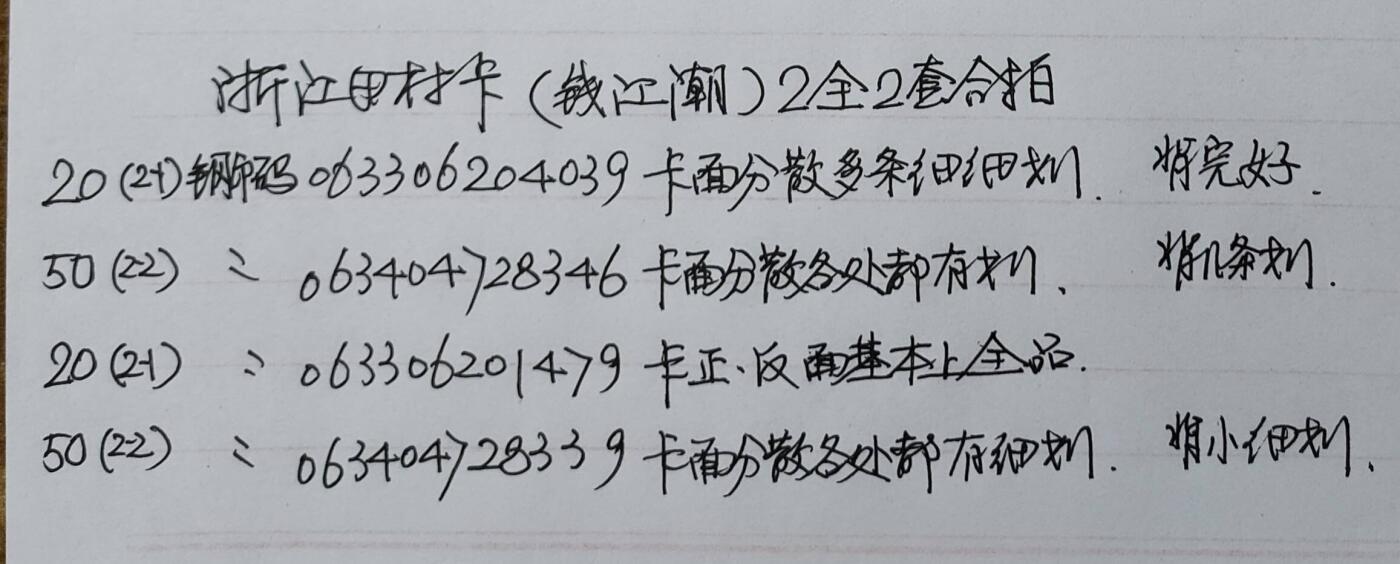 浙江田村卡(钱江潮)2全2套合拍
20(2-1)钢印码063306204039卡面分散多条细细划. 背完好.
50(2-2) 〃 063404728346卡面分散各处都有划、 背几条划.
20(2-1) 〃 063306201479卡正、反面基本上全品.
50(2-2) 〃 063404728339卡面分散各处都有细划. 背小细划、